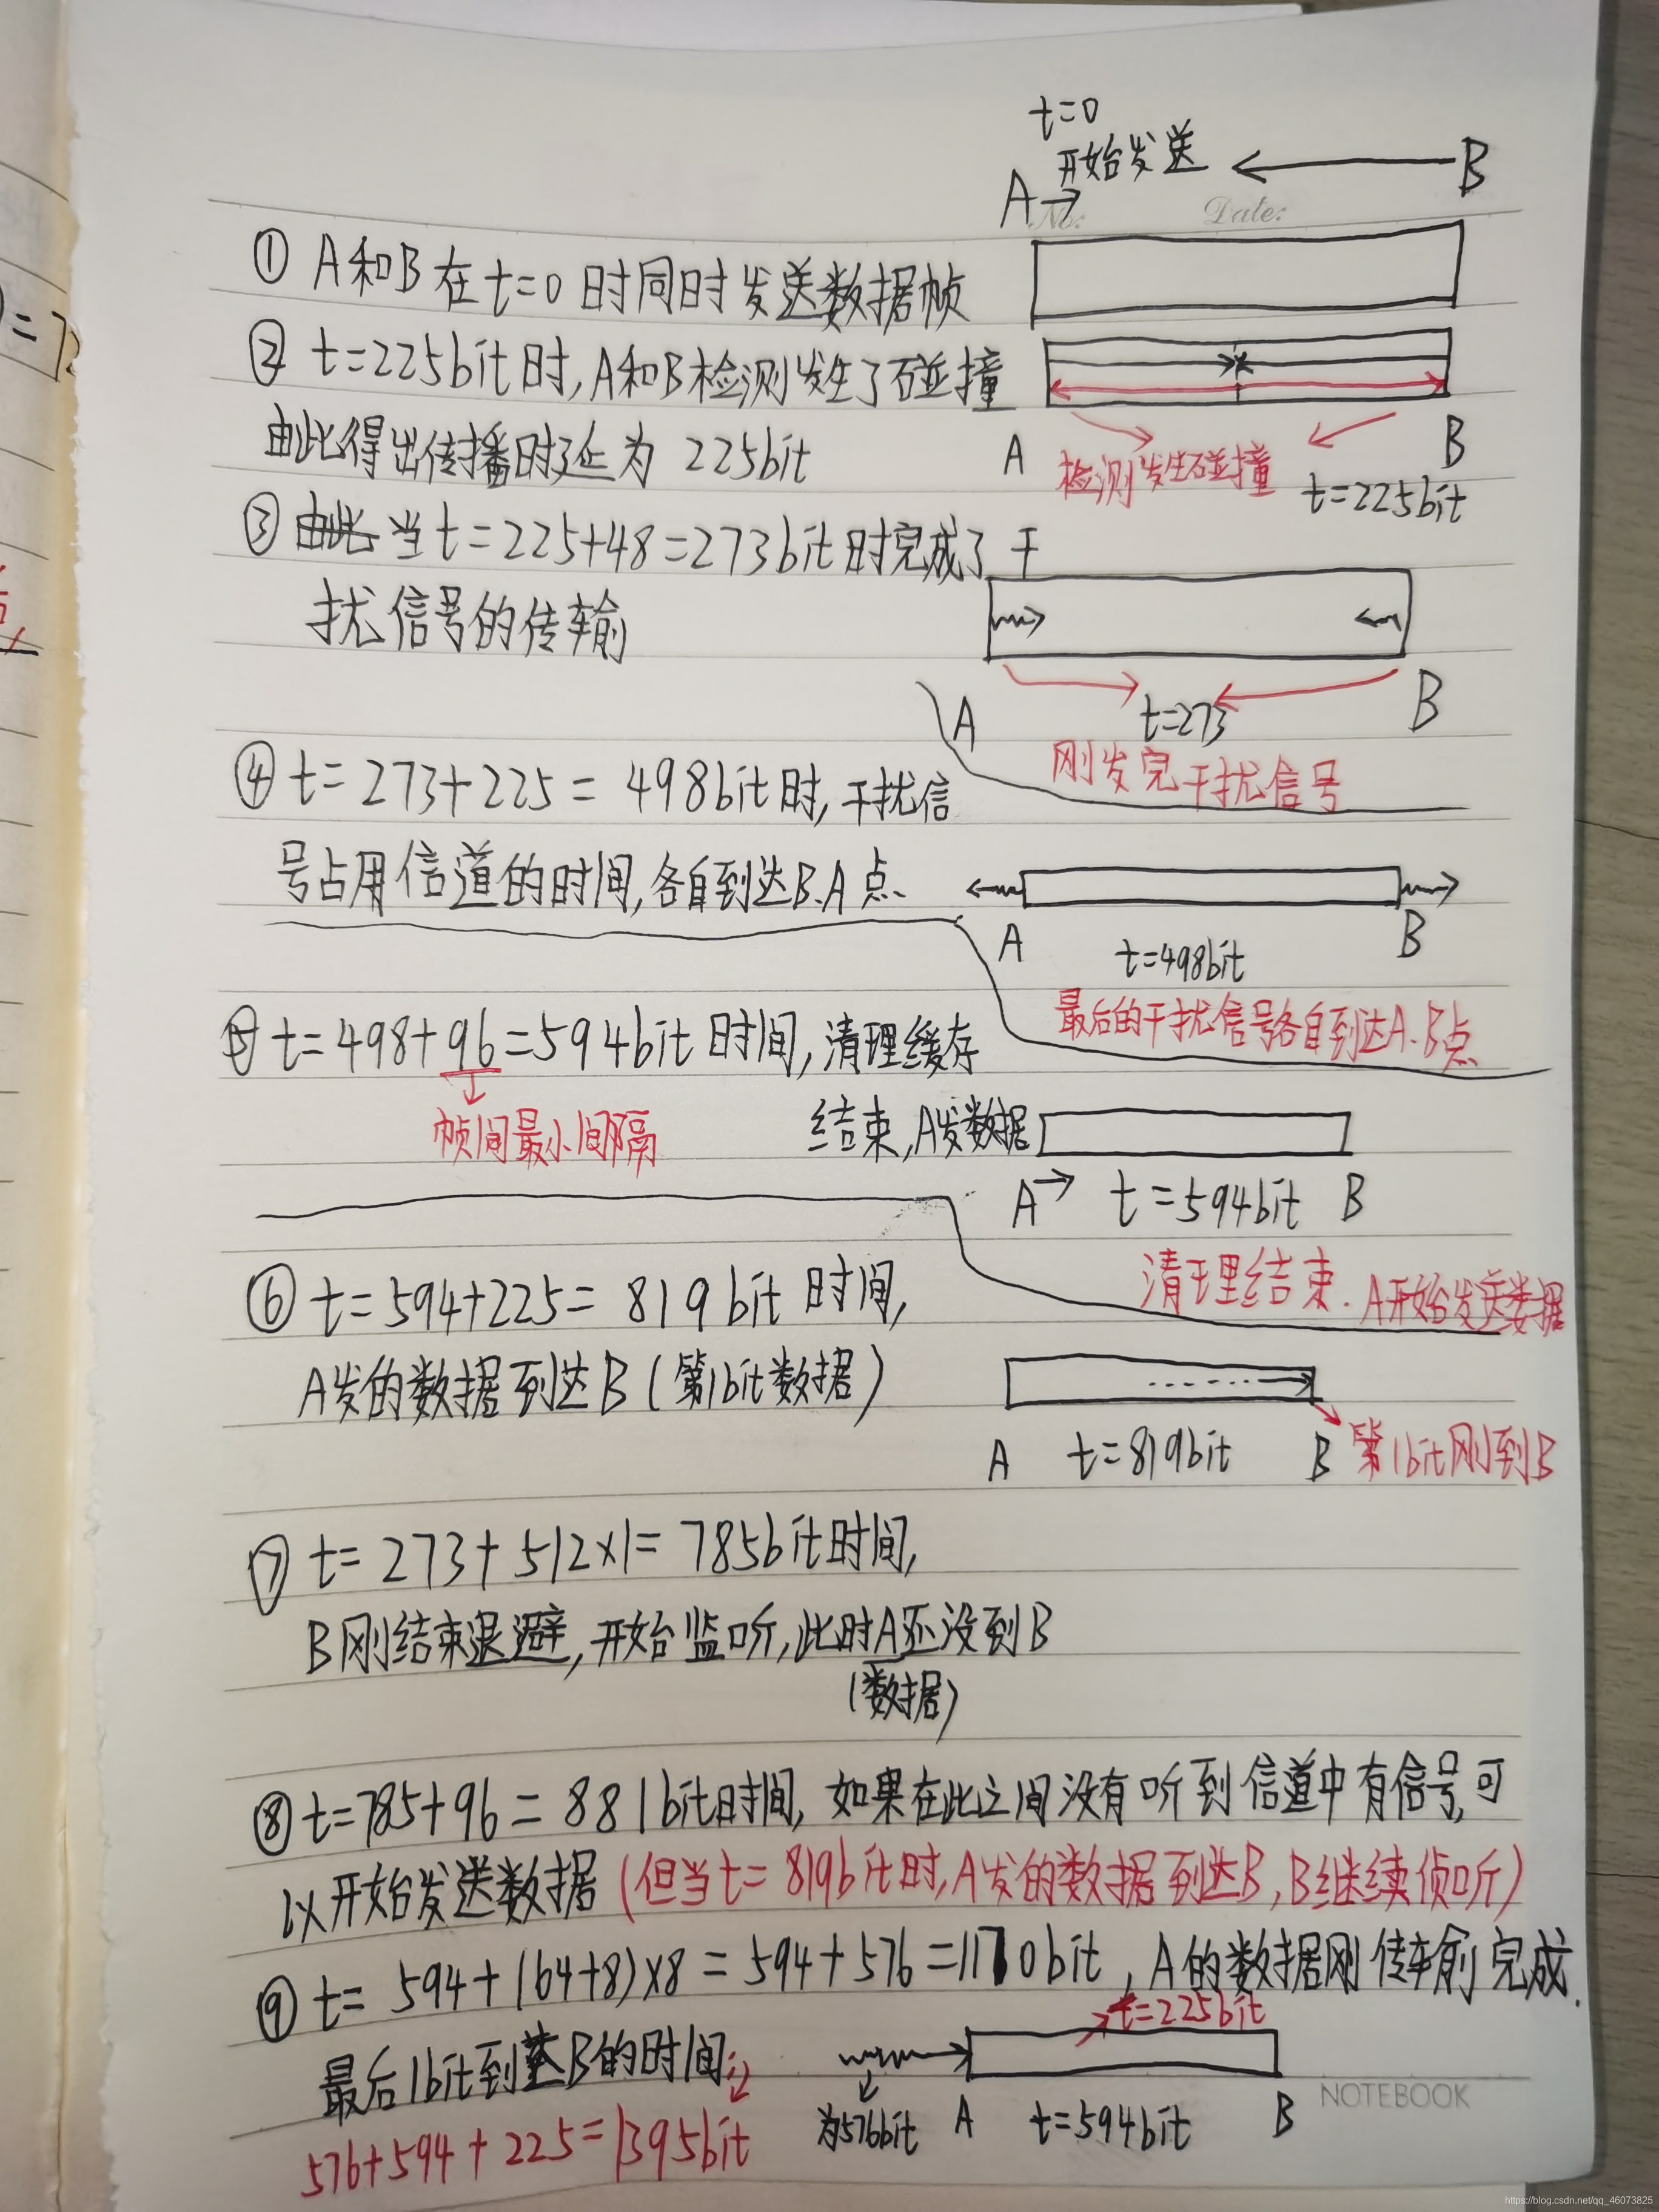 t=0
开始发送
A→ ← B
No: Date:
① A和B在t=0时同时发送数据帧
② t=225bit时,A和B检测发生了碰撞
由此得出传播时延为 225bit
A 检测发生碰撞 B
t=225bit
③ 由此 当t=225+48=273bit时完成了干
扰信号的传输
A t=273 B
刚发完干扰信号
④ t=273+225= 498bit时,干扰信
号占用信道的时间,各自到达B、A点、
A B
t=498bit
最后的干扰信号各自到达A、B点
⑤ t=498+96=594bit时间,清理缓存
帧间最小间隔
结束,A发数据
A→ t=594bit B
清理结束.A开始发送数据
⑥ t=594+225= 819bit 时间,
A发的数据到达B(第1bit数据)
A t=819bit B 第1bit刚到B
⑦ t= 273+512×1= 785bit时间,
B刚结束退避,开始监听,此时A还没到B
(数据)
⑧ t=785+96= 881bit时间, 如果在此之间没有听到信道中有信号,可
以开始发送数据(但当t=819bit时,A发的数据到达B,B继续侦听)
⑨ t= 594+(64+8)×8=594+576=1170bit,A的数据刚传输完成.
t=225bit
最后1bit到达B的时间:
为576bit A t=594bit B
576+594+225=1395bit
NOTEBOOK
0=7
https://blog.csdn.net/qq_46073825